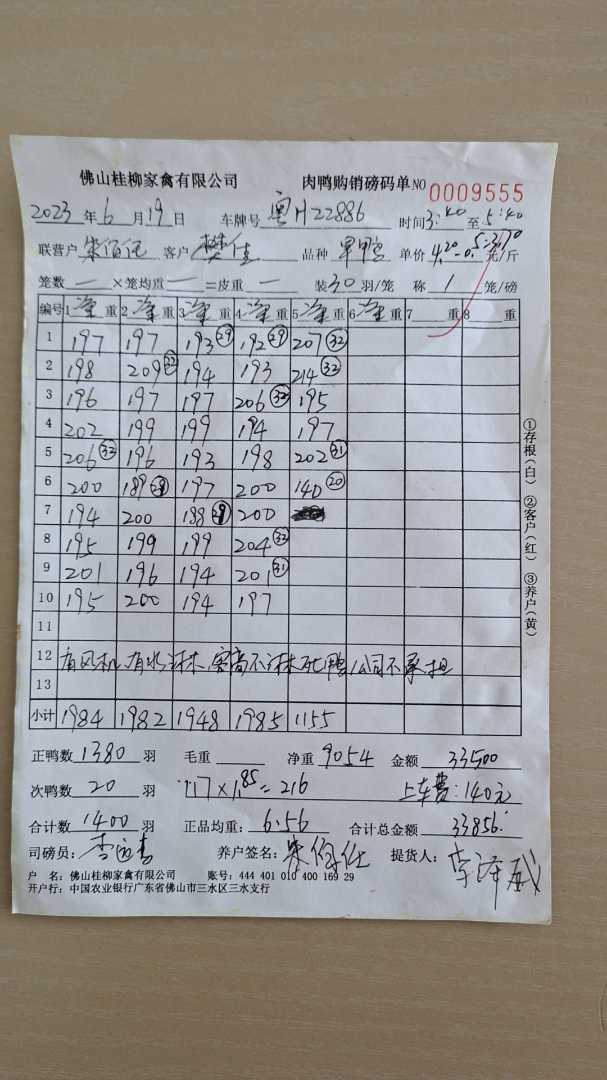 佛山桂柳家禽有限公司 肉鸭购销磅码单 NO 0009555
2023 年 6 月 19 日 车牌号 粤H22886 时间 3:40 至 5:40
联营户 朱 客户 樊佳 品种 旱鸭 单价 4.20-0.5=3.70 元/斤
笼数 一 ×笼均重 一 =皮重 一 装 30 羽/笼 称 1 笼/磅
编号 1 净 重 2 净 重 3 净 重 4 净 重 5 净 重 6 净 重 7 重 8 重
1 197 197 193 29 192 29 207 32
2 198 209 32 194 193 214 32
3 196 197 197 206 32 195
4 202 199 199 194 197
5 206 32 196 193 198 202 31
6 200 189 29 197 200 140 20
7 194 200 188 29 200
8 195 199 199 204 32
9 201 196 194 201 31
10 195 200 194 197
11
12 有风机、有水淋、客高不淋 死鸭公司不承担
13
小计 1984 1982 1948 1985 1155
正鸭数 1380 羽 毛重 净重 9054 金额 33500
次鸭数 20 羽 117×1.85=216 上车费:140元
合计数 1400 羽 正品均重: 6.56 合计总金额 33856.
司磅员: 李 养户签名: 朱 提货人: 李泽威
户 名: 佛山桂柳家禽有限公司 账号: 444 401 010 400 169 29
开户行: 中国农业银行广东省佛山市三水区三水支行
①存根(白) ②客户(红) ③养户(黄)